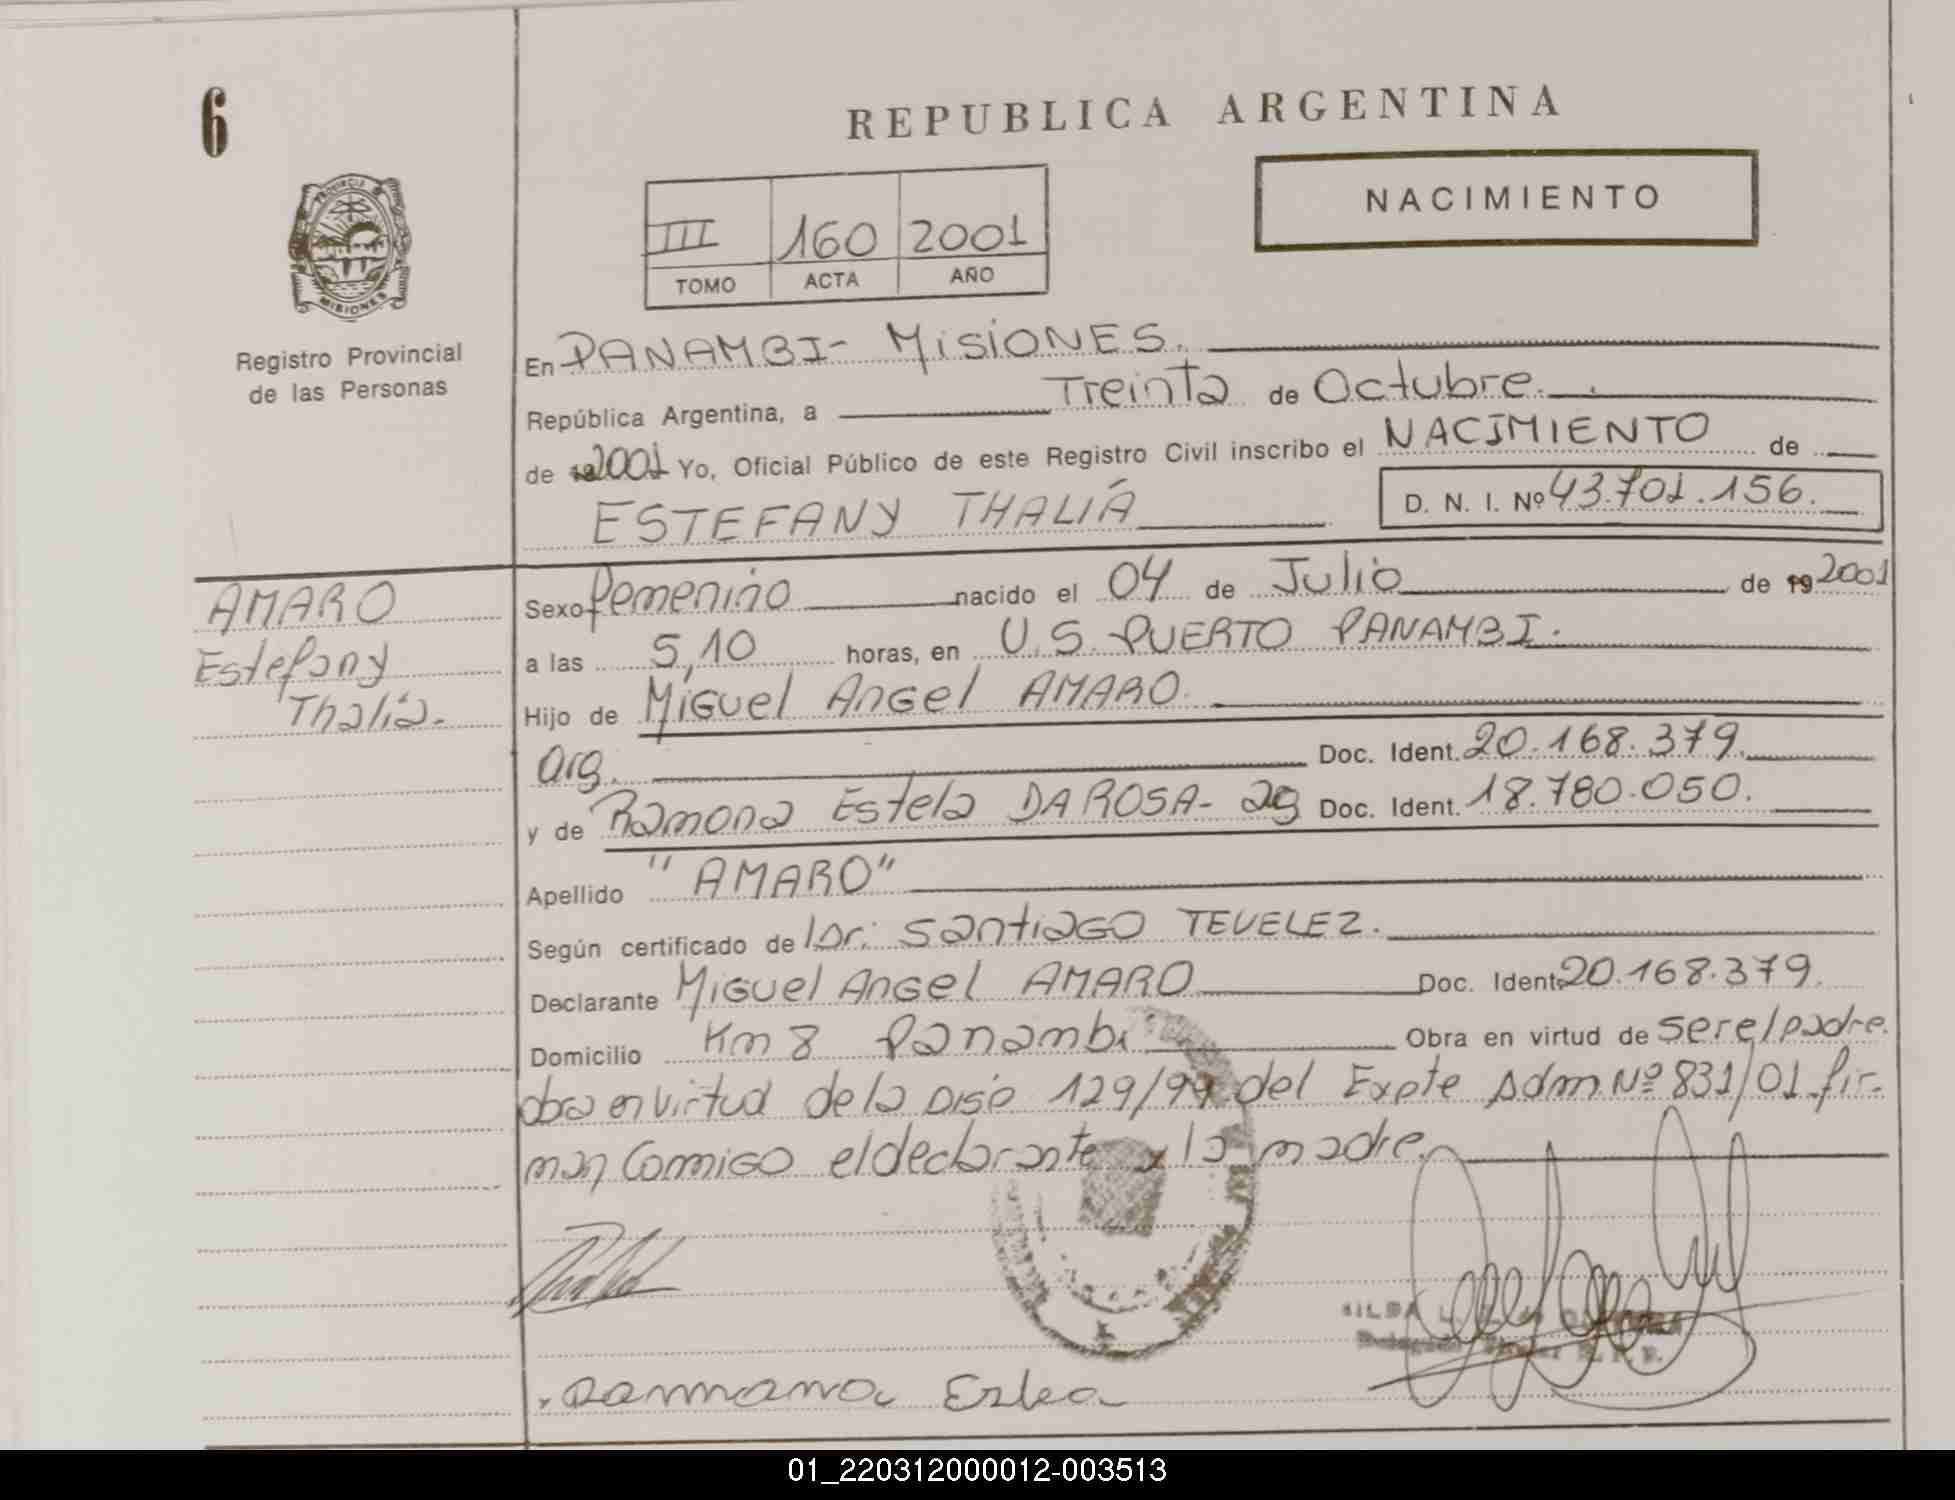 6
REPUBLICA ARGENTINA
NACIMIENTO
III 160 2001
TOMO ACTA AÑO
PROVINCIA
MISIONES
Registro Provincial
de las Personas
En PANAMBI - MISIONES.
República Argentina, a Treinta de Octubre.
de 2001 Yo, Oficial Público de este Registro Civil inscribo el NACIMIENTO de
ESTEFANY THALIÁ D. N. I. Nº 43.701.156.
AMARO
Estefany
Thalía.
Sexo femenino nacido el 04 de Julio de 19 2001
a las 5,10 horas, en U.S. PUERTO PANAMBI.
Hijo de Miguel Angel AMARO.
arg. Doc. Ident. 20.168.379.
y de Ramona Estela DA ROSA - ag Doc. Ident. 18.780.050.
Apellido "AMARO"
Según certificado de Dr. Santiago TEVELEZ.
Declarante Miguel Angel AMARO Doc. Ident. 20.168.379.
Domicilio Km 8 Panambi Obra en virtud de ser el padre.
obra en virtud de la Disp 129/99 del Expte Adm. Nº 831/01. fir-
man Conmigo el declarante y la madre.
01_220312000012-003513